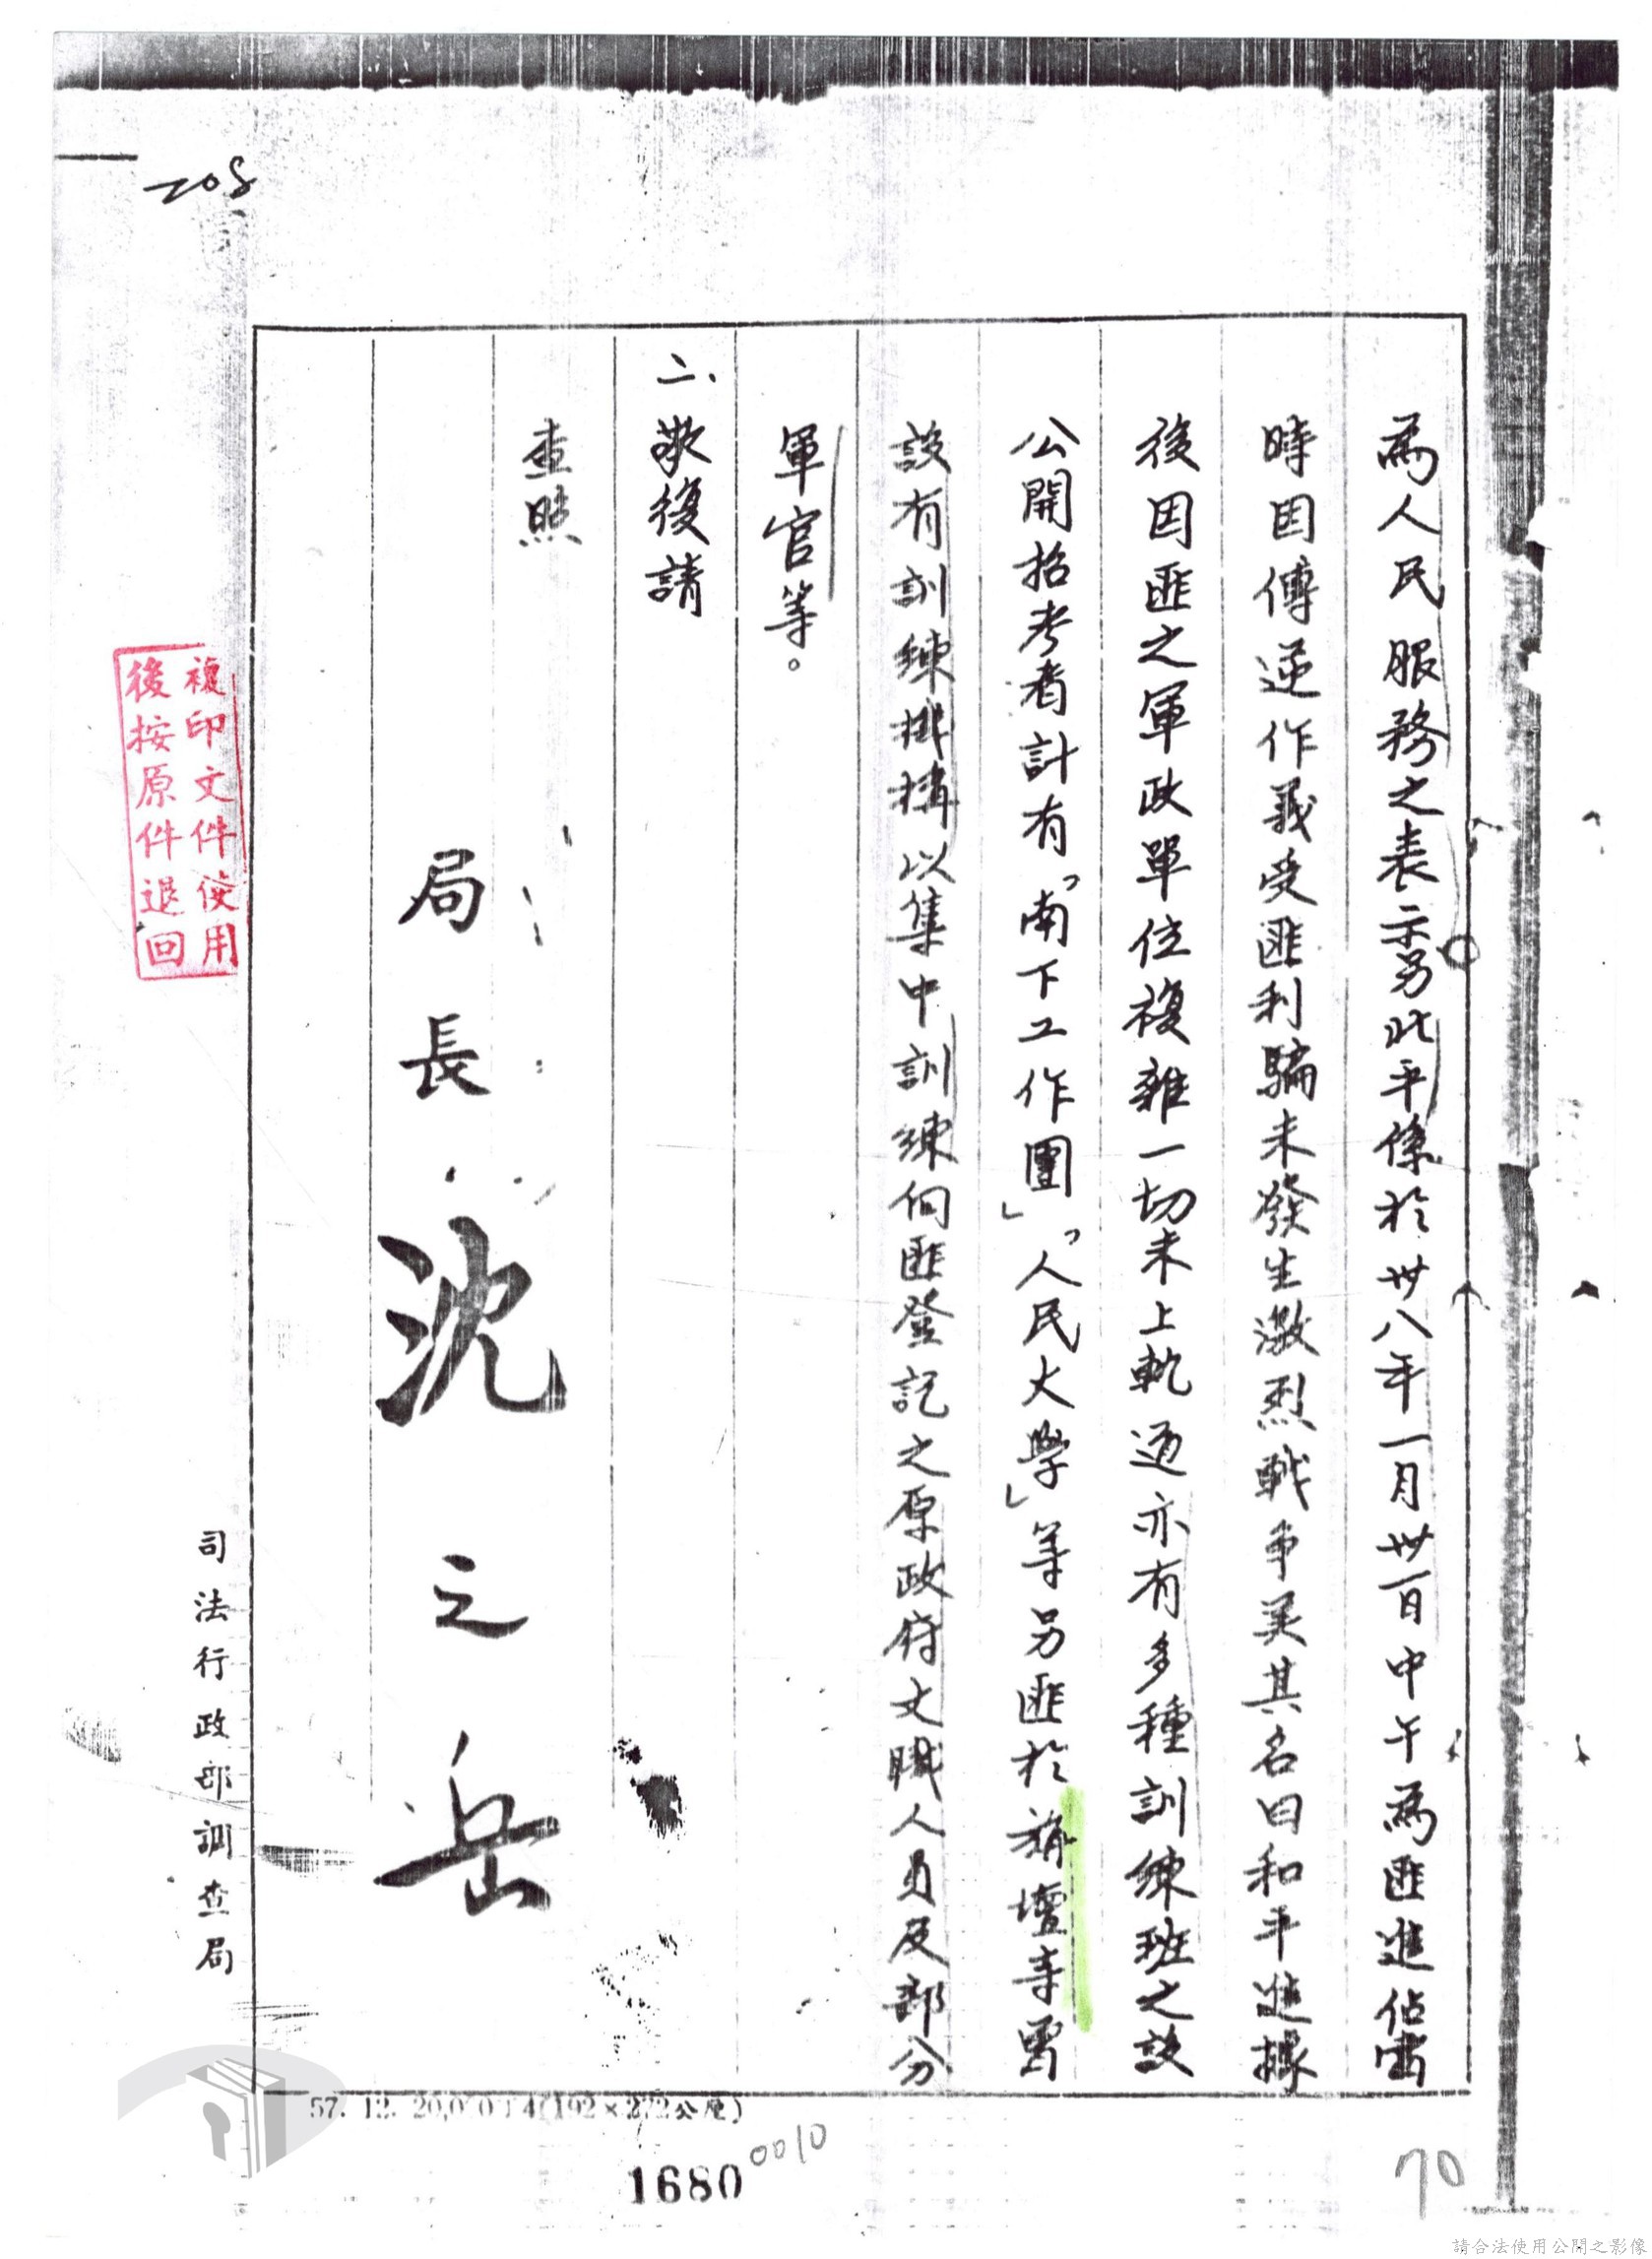 208
為人民服務之表示另北平係於卅八年一月卅一日中午為匪進佔當
時因傅逆作義受匪利騙未發生激烈戰爭美其名曰和平進據
後因匪之軍政單位複雜一切未上軌道亦有多種訓練班之設
公開招考者計有「南下工作團」「人民大學」等另匪於旃壇寺曾
設有訓練機構以集中訓練向匪登記之原政府文職人員及部分
軍官等。
二、敬復請
查照
局長沈之岳
複印文件使用
後按原件退回
司法行政部調查局
57. 12. 20,000 14(192×272公厘)
1680
0010
70
請合法使用公開之影像